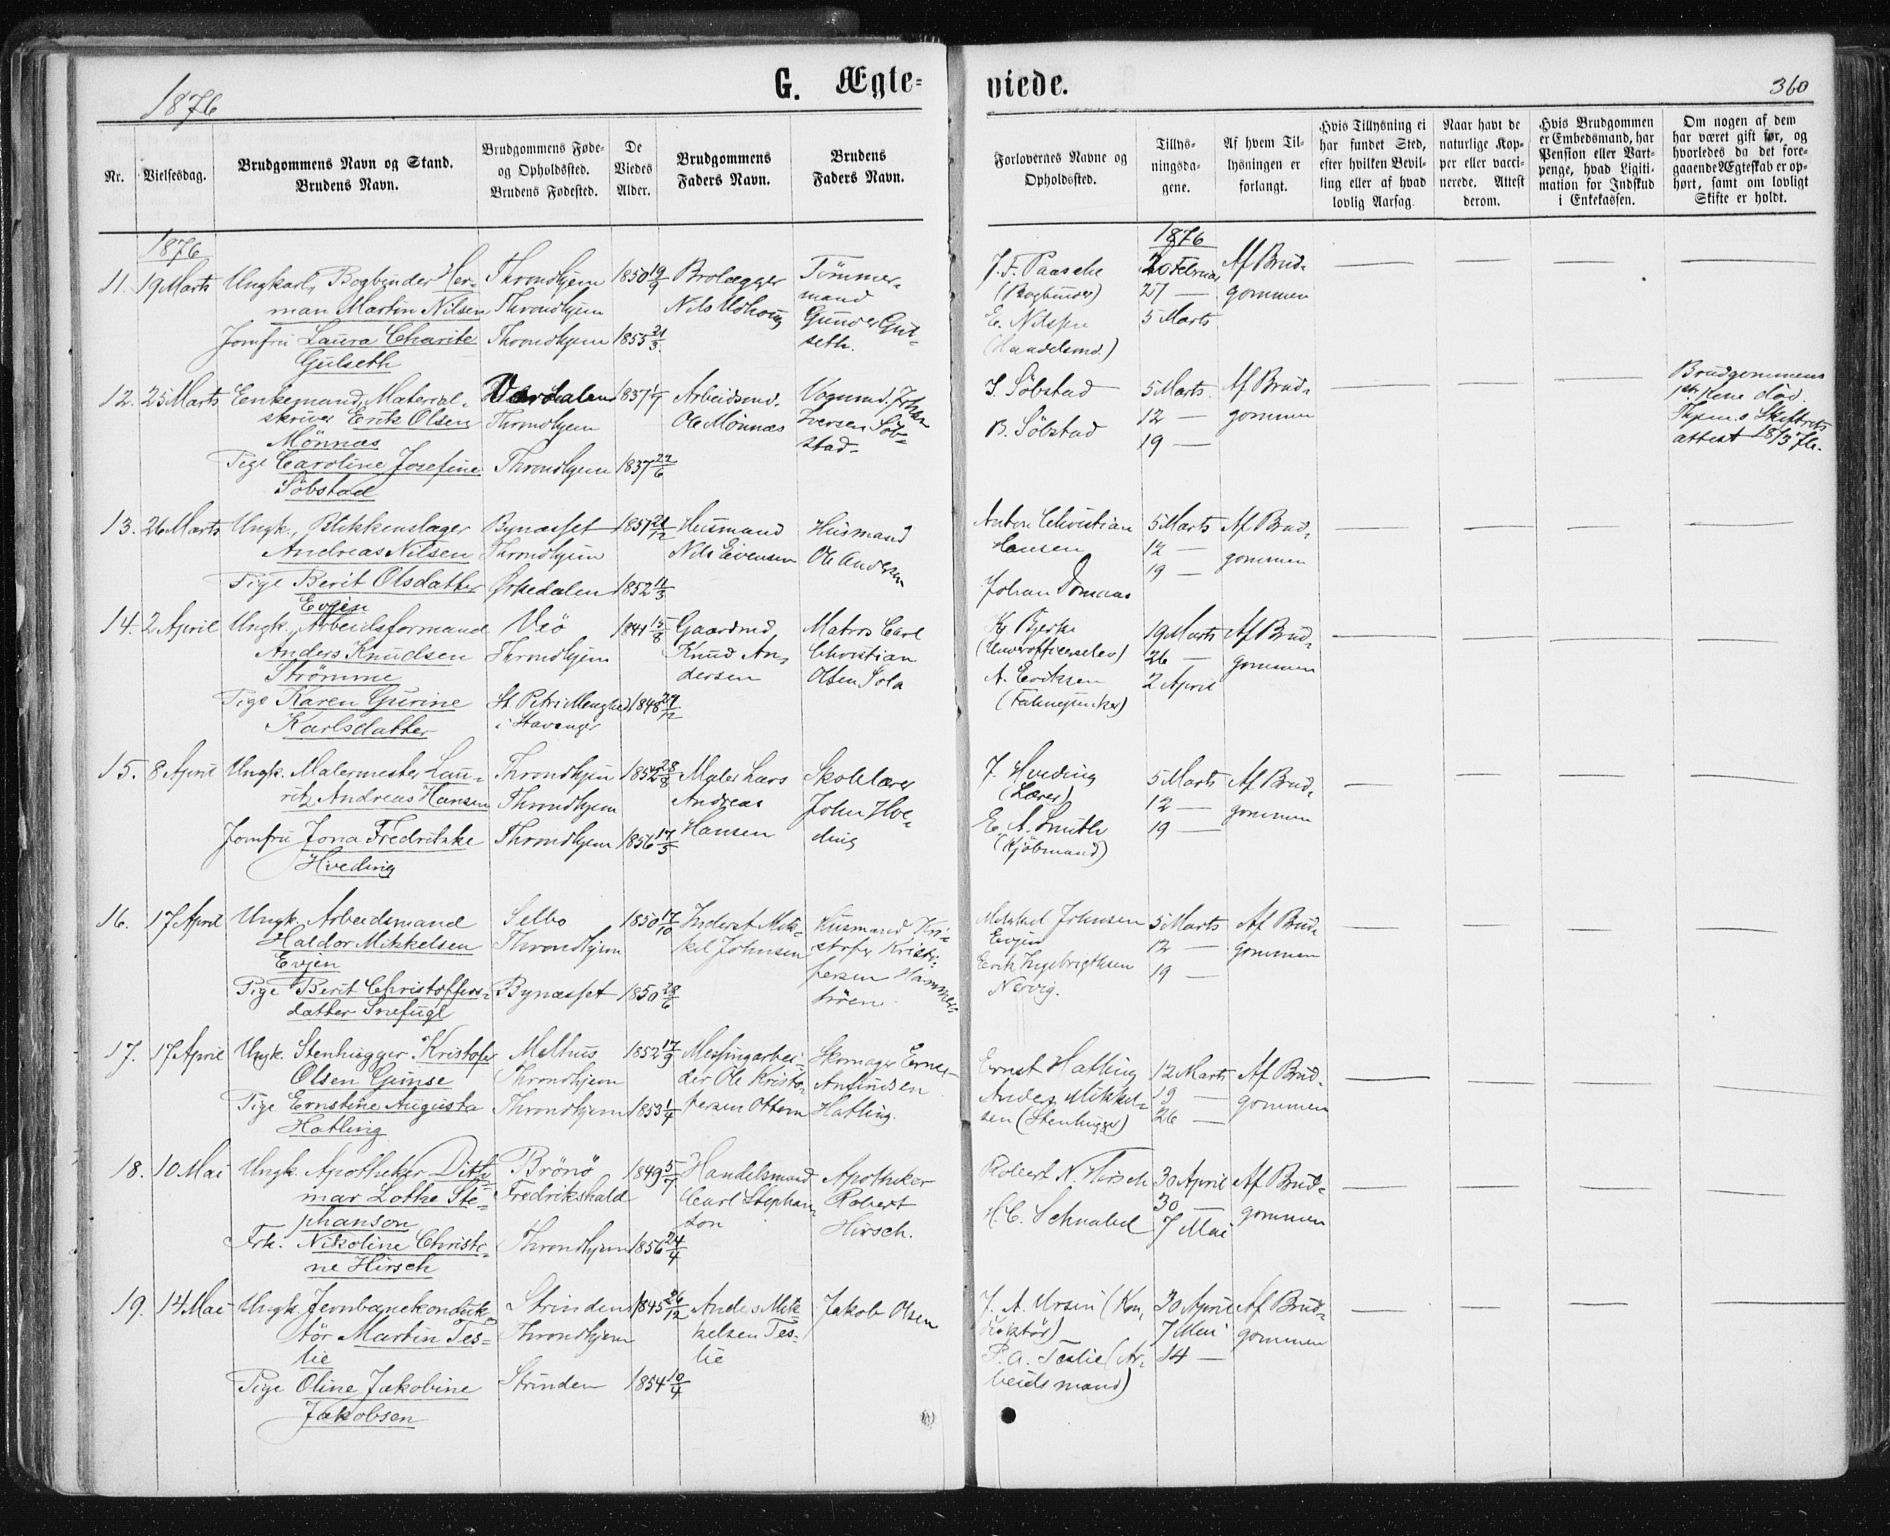 1876
G. Ægte=
viede.
360
Nr.
Vielsesdag.
Brudgommens Navn og Stand.
Brudens Navn.
Brudgommens Føde=
og Opholdssted.
Brudens Fødested.
De
Viedes
Alder.
Brudgommens
Faders Navn.
Brudens
Faders Navn.
Forlovernes Navne og
Opholdssted.
Tillys=
ningsda=
gene.
Af hvem Til=
lysningen er
forlangt.
Hvis Tillysning ei
har fundet Sted,
efter hvilken Bevil=
ling eller af hvad
lovlig Aarsag.
Naar havt de
naturlige Kop=
per eller vacci=
nerede. Attest
derom.
Hvis Brudgommen
er Embedsmand, har
Pension eller Vart=
penge, hvad Legiti=
mation for Indskud
i Enkekassen.
Om nogen af dem
har været gift før, og
hvorledes da det fore=
gaaende Ægteskab er op=
hørt, samt om lovligt
Skifte er holdt.
1876
11. 19 Marts
Ungkarl, Bogbinder Her-
man Martin Nilsen
Jomfru Laura Charite
Gulseth
Throndhjem
Throndhjem
Throndhjem
1850 19/9
1855 21/3
Brolægger
Nils Udhoug
Tømmer-
mand
Gunder Gul-
seth.
J. F. Paasche
(Bogbinder)
E. Nilssen
(Handelsmd.)
1876
20 Februar
27 —
5 Marts
Af Brud-
gommen
12. 25 Marts
Enkemand, Material-
skriver Erik Olsen
Mønnæs
Pige Caroline Josefine
Søbstad
Værdalen
Throndhjem
Throndhjem
1837 1/7
1837 27/6
Arbeidsmd.
Ole Mønnæs
Vognmd. Johan
Iversen Søb-
stad
I. Søbstad
B. Søbstad
5 Marts
12 —
19 —
Af Brud-
gommen
Brudgommens
1ste Kone død.
Thjems Skifterets
attest 18/3 76.
13. 26 Marts
Ungk., Blikkenslager
Andreas Nilsen
Pige Berit Olsdatter
Evjen
Bynæsset
Throndhjem
Ørkedalen
1852 11/3
Husmand
Nils Evensen
Husmand
Ole Andersen
Anton Christian
Hansen
Johan Domaas
5 Marts
12 —
19 —
Af Brud-
gommen
14. 2 April
Ungk., Arbeidsformand
Anders Knudsen
Strømme
Pige Karen Gurine
Karlsdatter
Veö
Throndhjem
St. Petri Menghed
i Stavanger
1841 15/8
1848 29/12
Gaardmd
Knud An-
dersen
Matros Carl
Christian
Olsen Sola
Kj Bjerke
(Underofficerselev)
A. Eriksen
(Fanejunker)
19 Marts
26 —
2 April
Af Brud-
gommen
15. 8 April
Ungk. Malermester Lau-
ritz Andreas Hansen
Jomfru Jona Fredrikke
Hveding
Throndhjem
Throndhjem
Throndhjem
1852 28/8
1856 17/5
Maler Lars
Andreas
Hansen
Skolelærer
John Hve-
ding
J. Hveding
(Lærer)
E. A. Smith
(Kjøbmand)
5 Marts
12 —
19 —
Af Brud-
gommen
16. 17 April
Ungk. Arbeidsmand
Haldor Mikkelsen
Evjen
Pige Berit Christoffers-
datter Snefugl
Selbo
Throndhjem
Bynæsset
1850 17/10
1850 28/6
Inderst Mik-
kel Johnsen
Husmand Kri-
stofer Kristo-
fersen Hammers-
trøen
Mikkel Johnsen
Evjen
Erik Ingebrigtsen
Nervig.
5 Marts
12 —
19 —
Af Brud-
gommen
17. 17 April
Ungk. Stenhugger Kristofer
Olsen Gimse
Pige Ernstine Augusta
Hatling
Melhus
Throndhjem
Throndhjem
1852 17/9
1853 1/4
Messingarbei-
der Ole Kristo-
fersen Ottem
Skomager Ernst
Amundsen
Hatling.
Ernst Hatling
Anders Mikkel-
sen (Stenhugger)
12 Marts
19 —
26 —
Af Brud-
gommen
18. 10 Mai
Ungk. Apotheker Dith-
mar Lothe Ste-
phanson
Frk. Nikoline Christi-
ne Hirsch
Brönö
Fredrikshald
Throndhjem
1849 5/7
1856 24/4
Handelsmand
Carl Stephan-
son
Apotheker
Robert
Hirsch.
Robert N. Hirsch
H. C. Schnabel
30 April
30 —
7 Mai
Af Brud-
gommen
19. 14 Mai
Ungk. Jernbanekonduk-
tör Martin Tes-
lie
Pige Oline Jakobine
Jakobsen
Strinden
Throndhjem
Strinden
1845 26/12
1854 10/4
Anders Mik-
kelsen Tes-
lie
Jakob Olsen
J. A. Ursin (Kon-
duktør)
P. A. Teslie (Ar-
beidsmand)
30 April
7 Mai
14 —
Af Brud-
gommen